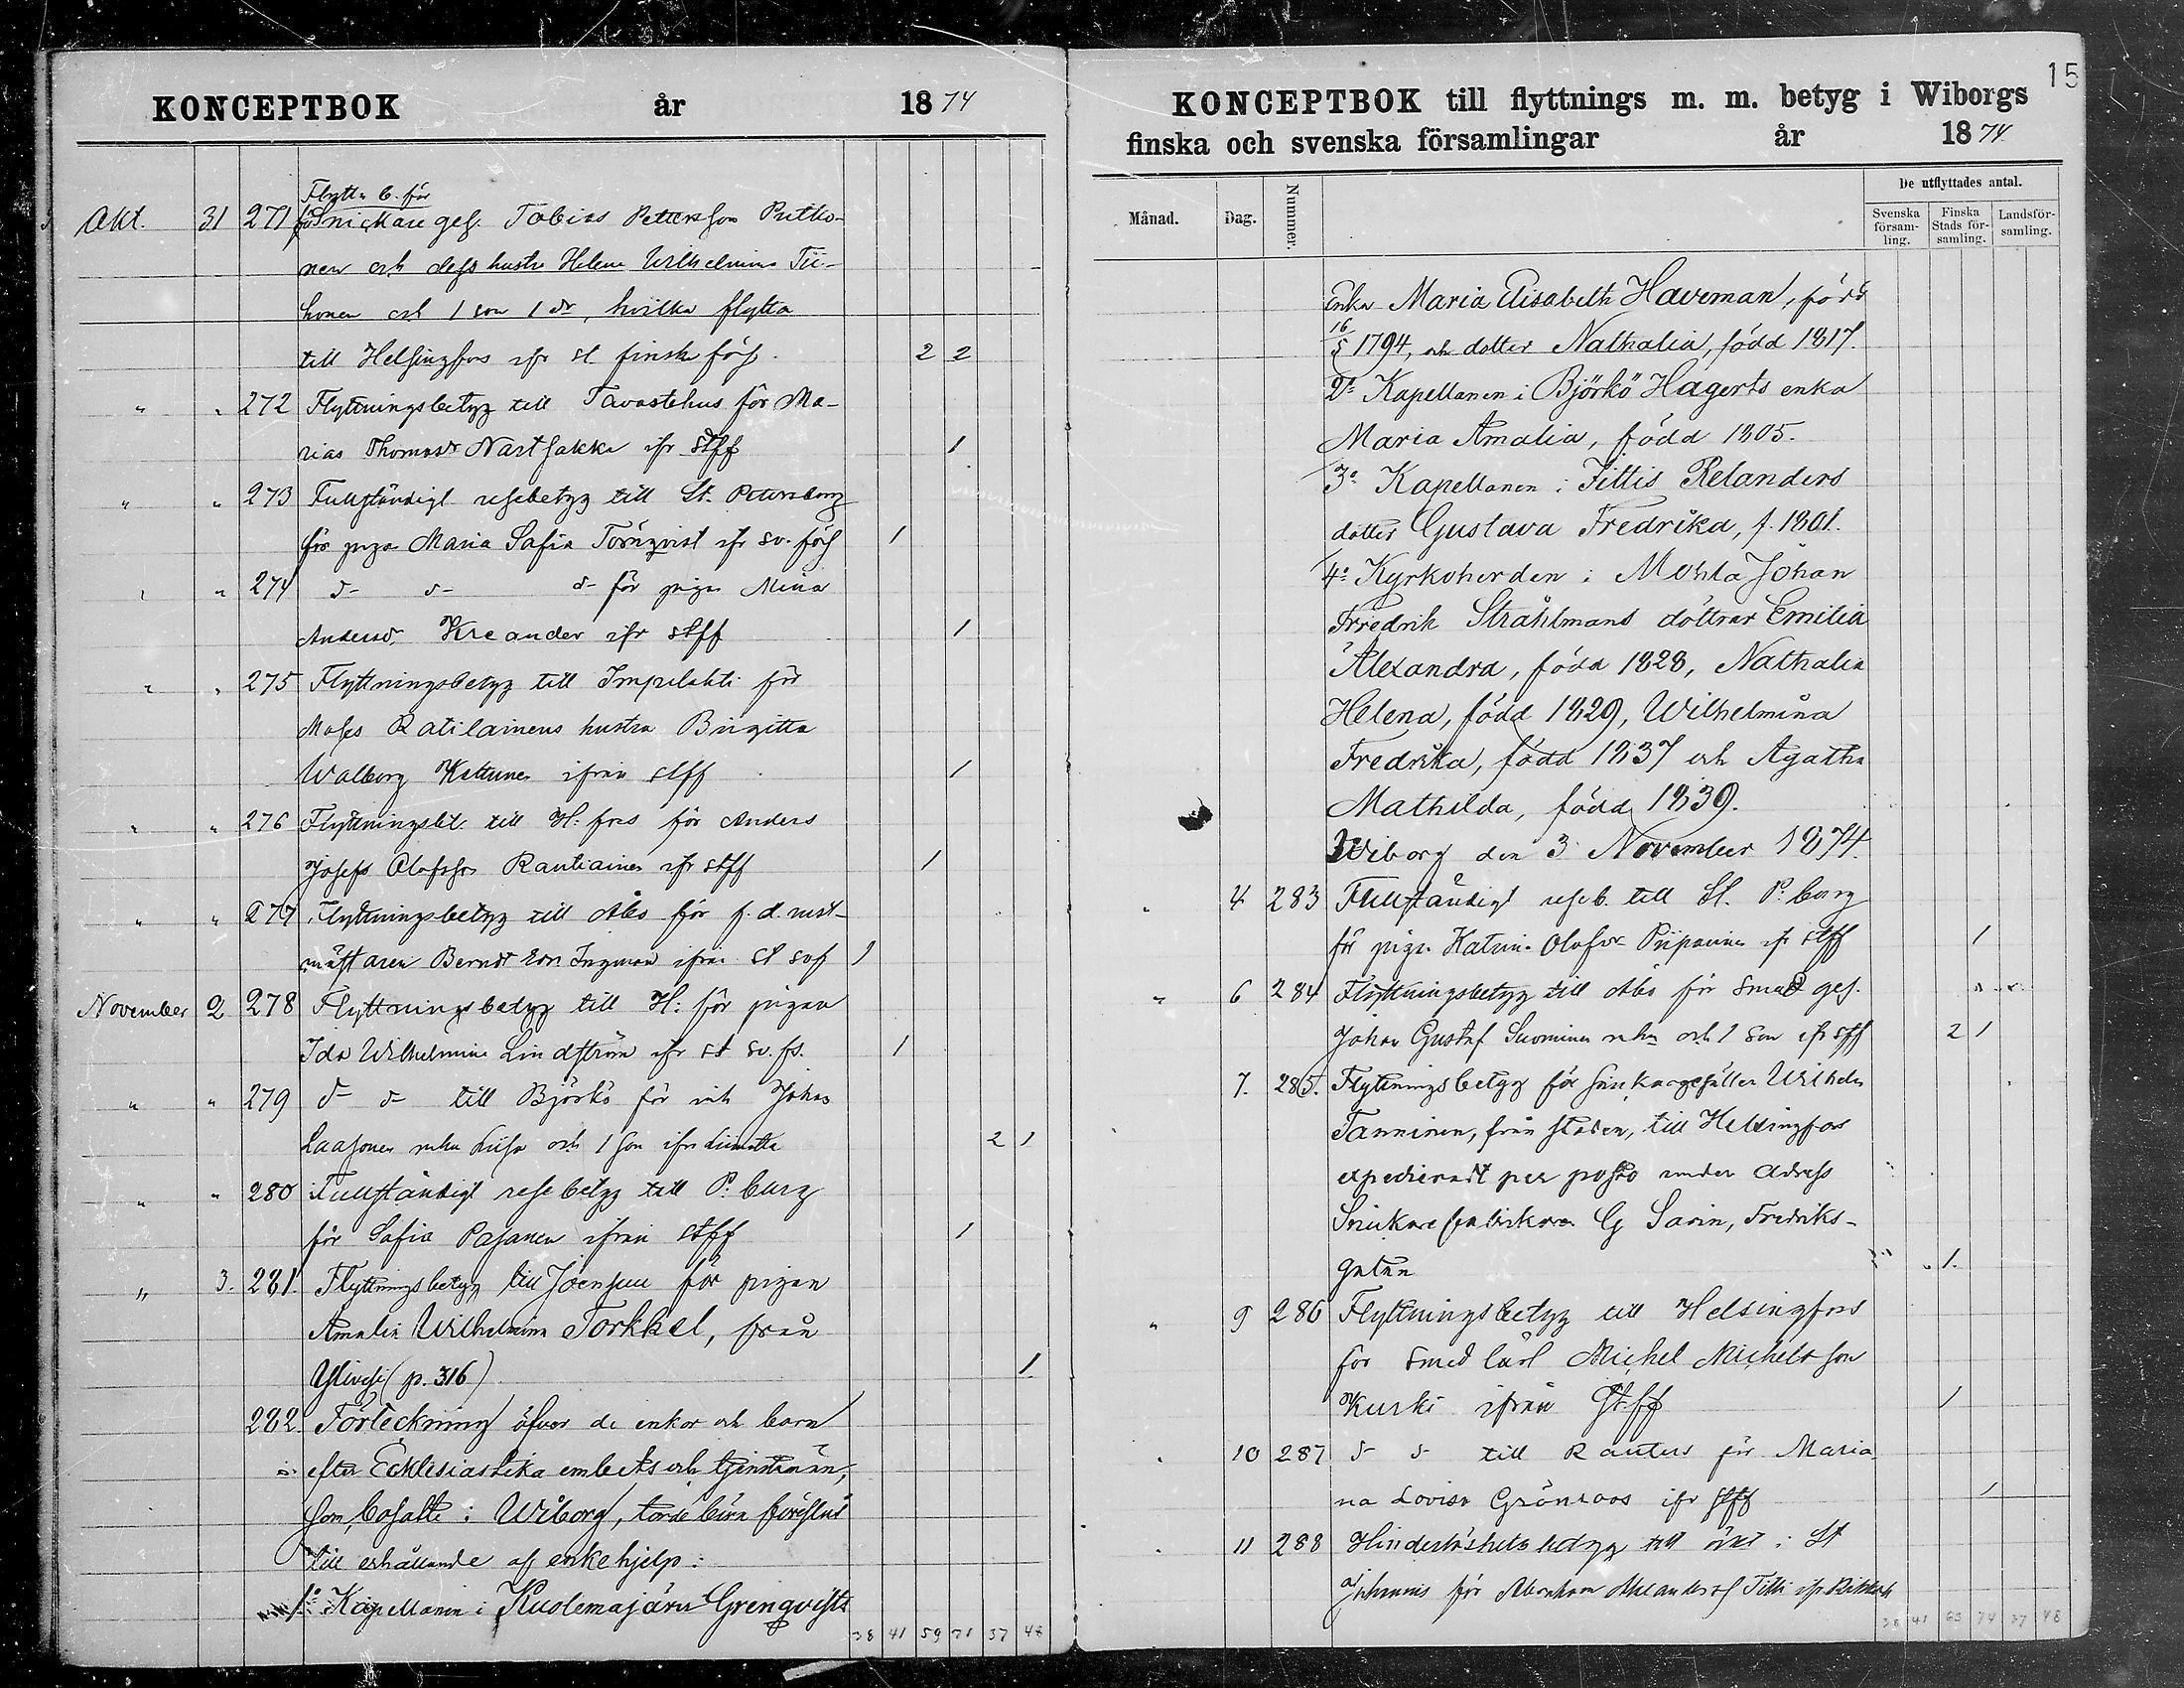 KONCEPTBOK år 1874
Flytt. b. för
Okt. 31 271 Snickare ges. Tobias Pettersson Putko-
nen och dess hustru Helena Wilhelmina Tii-
honen och 1 son 1 dr, hvilka flytta
till Helsingfors ifr st. finska förs. 2 2
" " 272 Flyttningsbetyg till Tavastehus för Ma-
rias Thomasdr Nartsakka ifr stff 1
" " 273 Fullständigt resebetyg till St. Petersburg
för pigan Maria Sofia Törnqvist ifr sv. förs 1
" " 274 d- d- d- för pigan Mina
Andersdr Kreander ifr stff 1
" " 275 Flyttningsbetyg till Impilahti för
Moses Ratilainens hustru Birgitta
Walborg Kettunen ifrån stff 1
" " 276 Flyttningsbet. till H:fors för Anders
Josefs Olofsson Rautiainen ifr stff 1
" " 277 Flyttningsbetyg till Åbo för f.d. rust-
mästaren Berndt Edv. Ingman ifrån st svf 1
November 2 278 Flyttningsbetyg till H: för pigan
Ida Wilhelmina Lindström ifr st sv. fs. 1
" " 279 d- d- till Björkö för inh Johan
Laasonen och 1 son ifr 2 1
" " 280 Fullständigt resebetyg till P:burg
för Sofia Pasanen ifrån stff 1
" 3. 281. Flyttningsbetyg till Joensuu för pigan
Amalia Wilhelmina Torkkel, från
Ylivesi (p. 316) 1
282. Förteckning öfver de enkor och barn
efter Ecklesiastika embets och tjenstemän,
som, bosatte i Wiborg, torde böra föreslås
till erhållande af enkehjelp:
1:o Kapellanen i Kuolemajärvi Grenqvists
38 41 59 71 37 48
15
KONCEPTBOK till flyttnings m. m. betyg i Wiborgs
finska och svenska församlingar år 1874.
Månad. Dag. Nummer. De utflyttades antal.
Svenska församling. Finska Stads församling. Landsförsamling.
enka Maria Elisabeth Haveman, född
16/5 1794, och dotter Nathalia, född 1817.
2:o Kapellanen i Björkö Hagerts enka
Maria Amalia, född 1805.
3:o Kapellanen i Tittis Relanders
dotter Gustava Fredrika, f. 1801.
4:o Kyrkoherden i Mohla Johan
Fredrik Stråhlmans döttrar Emilia
Alexandra, född 1828, Nathalia
Helena, född 1829, Wilhelmina
Fredrika, född 1837 och Agatha
Mathilda, född 1839.
Wiborg den 3 November 1874.
" 4 283 Fullständigt reseb. till St. P:burg
för pigan Katrina Olofsdr Piipainen ifr stff 1
" 6 284 Flyttningsbetyg till Åbo för Smed ges.
Johan Gustaf Suominen och 1 son ifr stff 2 1
7. 285. Flyttningsbetyg för snickaregesällen Wilhelm
Tanninen, från staden, till Helsingfors
expedieradt per posto under adress
Snickare fabrikören G Sarin, Fredriks-
gatan 1.
" 9 286 Flyttningsbetyg till Helsingfors
för Smed lärl Michel Michelsson
Kurki ifrån Stff 1
" 10 287 d- d- till Rautus för Maria-
na Lovisa Grönroos ifr stff 1
" 11 288 Hinderlöshetsbetyg till äkt. i St
Johannis för Abraham Titti ifr
38 41 63 74 37 48